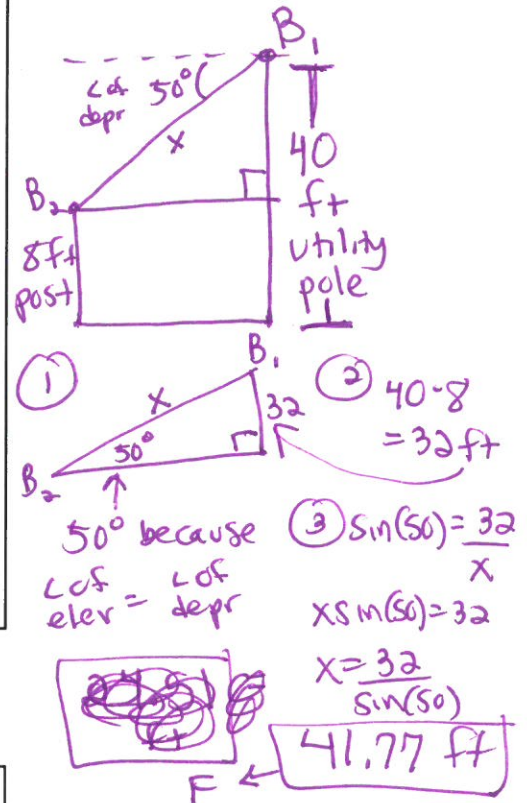 B₁
∠of depr 50°
x
40 ft utility pole
B₂
8ft post
① B₁
x
32
50°
B₂
② 40-8
= 32 ft
50° because
∠of elev = ∠of depr
③ sin(50) = 32/x
x sin(50) = 32
x = 32/sin(50)
41.77 ft
F